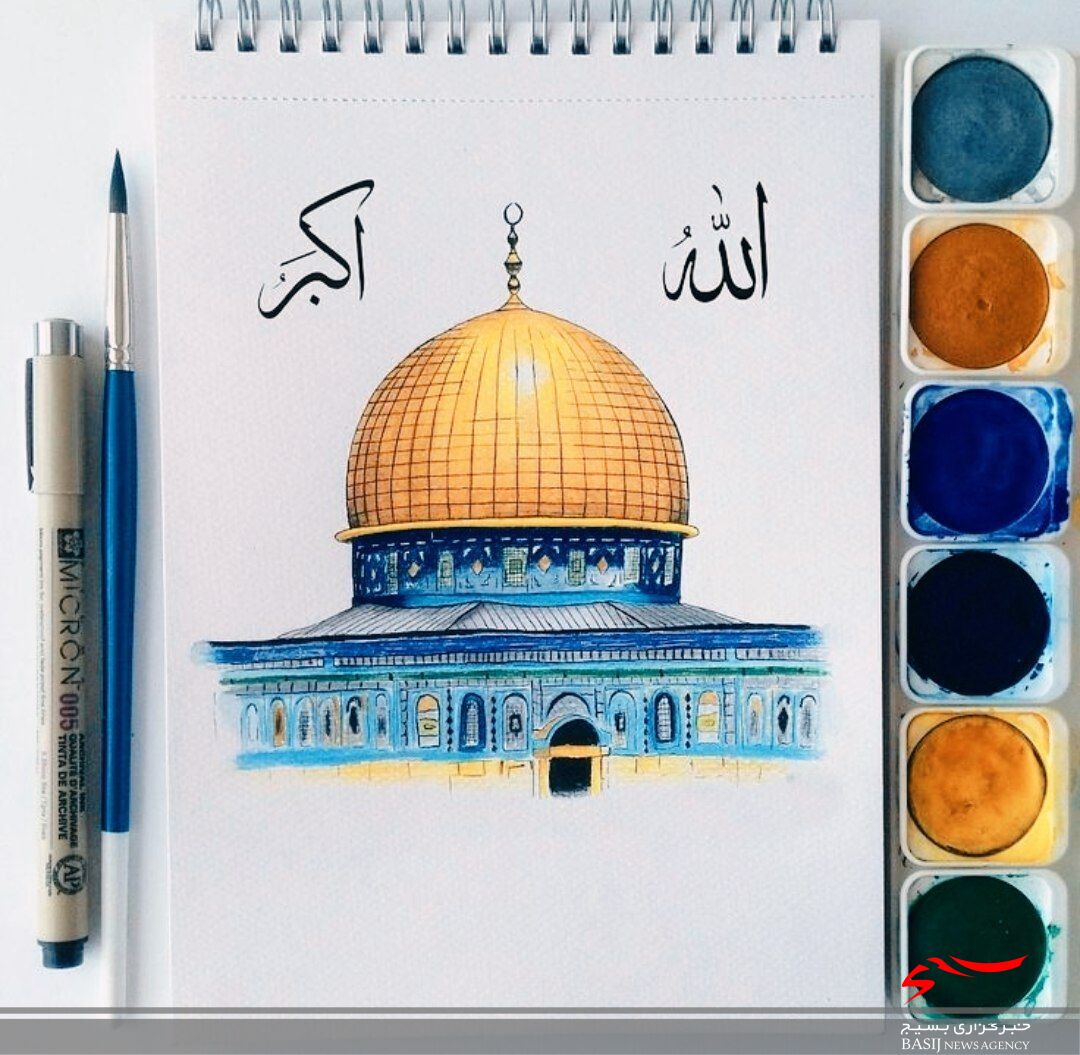 الله اكبر
MICRON 005
ARCHIVAL INK
QUALITÉ D'ARCHIVAGE
TINTA DE ARCHIVE
AP
خبرگزاری بسیج
BASIJ NEWS AGENCY